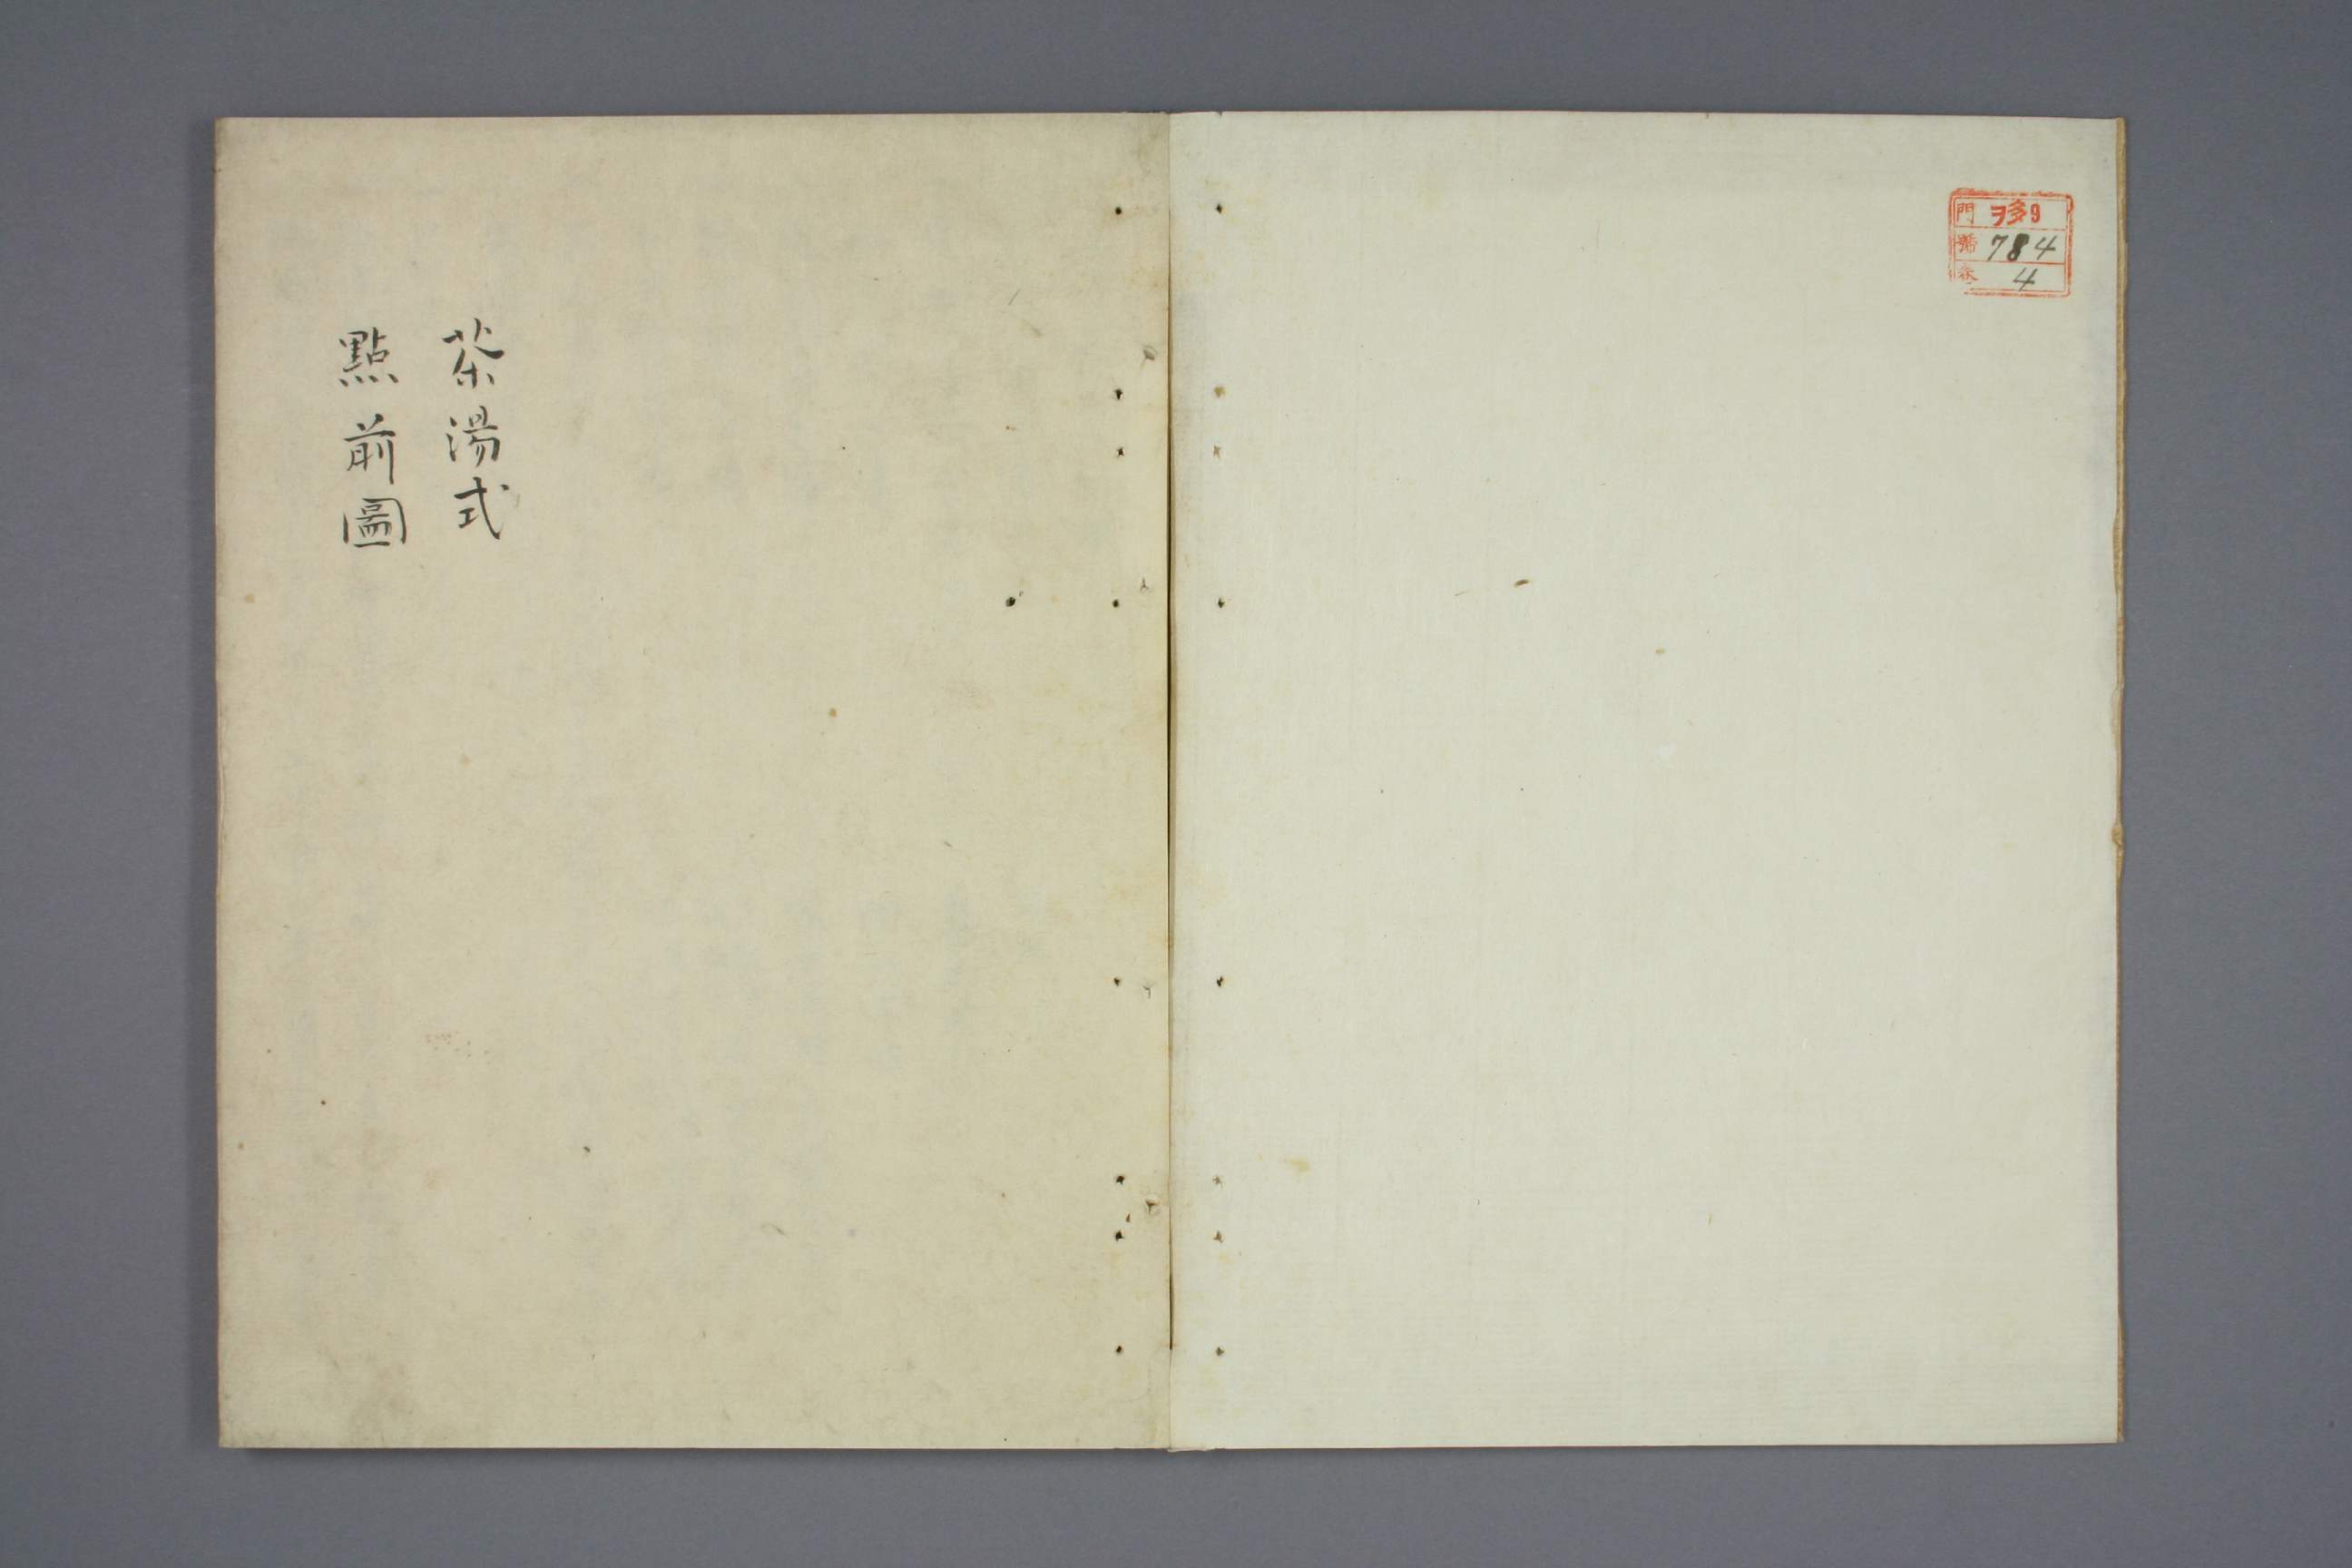 門 ヲ多9
號 784
卷 4
茶湯式
點前圖